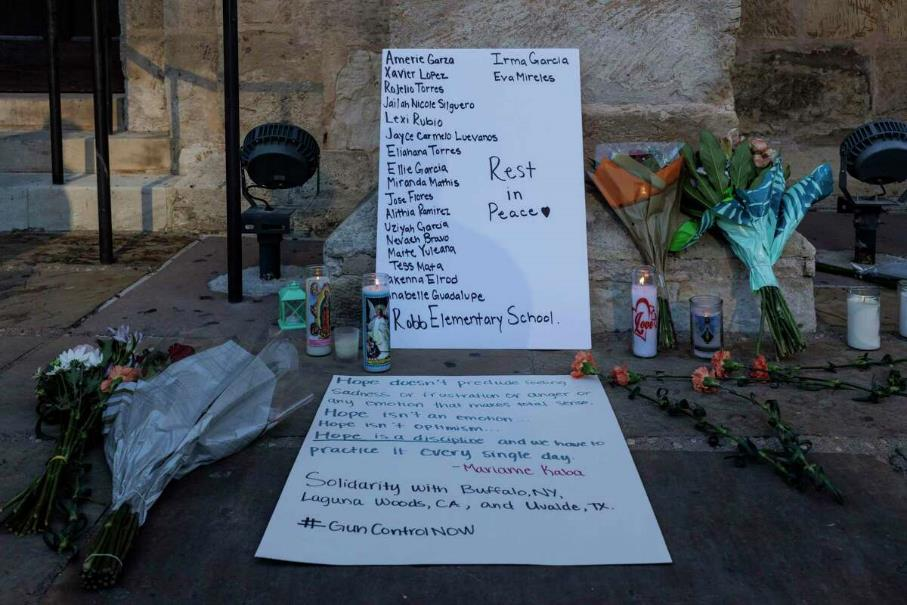 Amerie Garza
Xavier Lopez
Rojelio Torres
Jailah Nicole Silguero
Lexi Rubio
Jayce Carmelo Luevanos
Eliahana Torres
Ellie Garcia
Miranda Mathis
Jose Flores
Alithia Ramirez
Uziyah Garcia
Nevaeh Bravo
Maite Yuleana
Tess Mata
akenna Elrod
nabelle Guadalupe
Robb Elementary School.
Irma Garcia
Eva Mireles
Rest
in
Peace♥
Love
Hope doesn't preclude feeling
sadness or frustration or anger or
any emotion that makes total sense.
Hope isn't an emotion...
Hope isn't optimism...
Hope is a discipline and we have to
practice it every single day.
-Mariame Kaba
Solidarity with Buffalo, NY,
Laguna Woods, CA, and Uvalde, TX.
#GunControlNOW